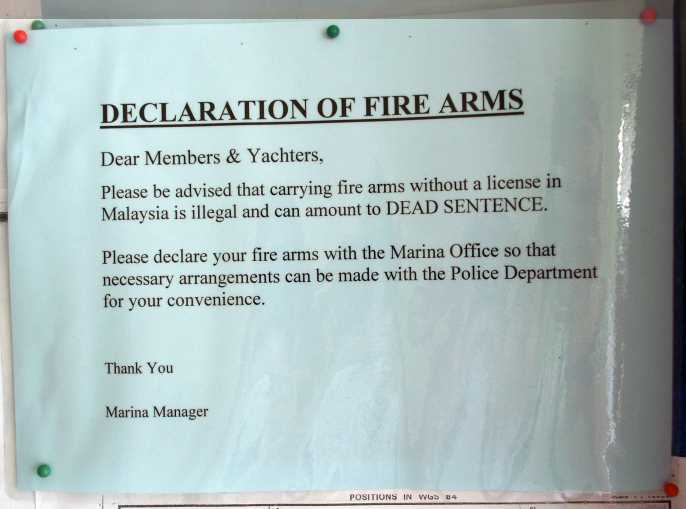 DECLARATION OF FIRE ARMS
Dear Members & Yachters,
Please be advised that carrying fire arms without a license in
Malaysia is illegal and can amount to DEAD SENTENCE.
Please declare your fire arms with the Marina Office so that
necessary arrangements can be made with the Police Department
for your convenience.
Thank You
Marina Manager
POSITIONS IN WGS 84